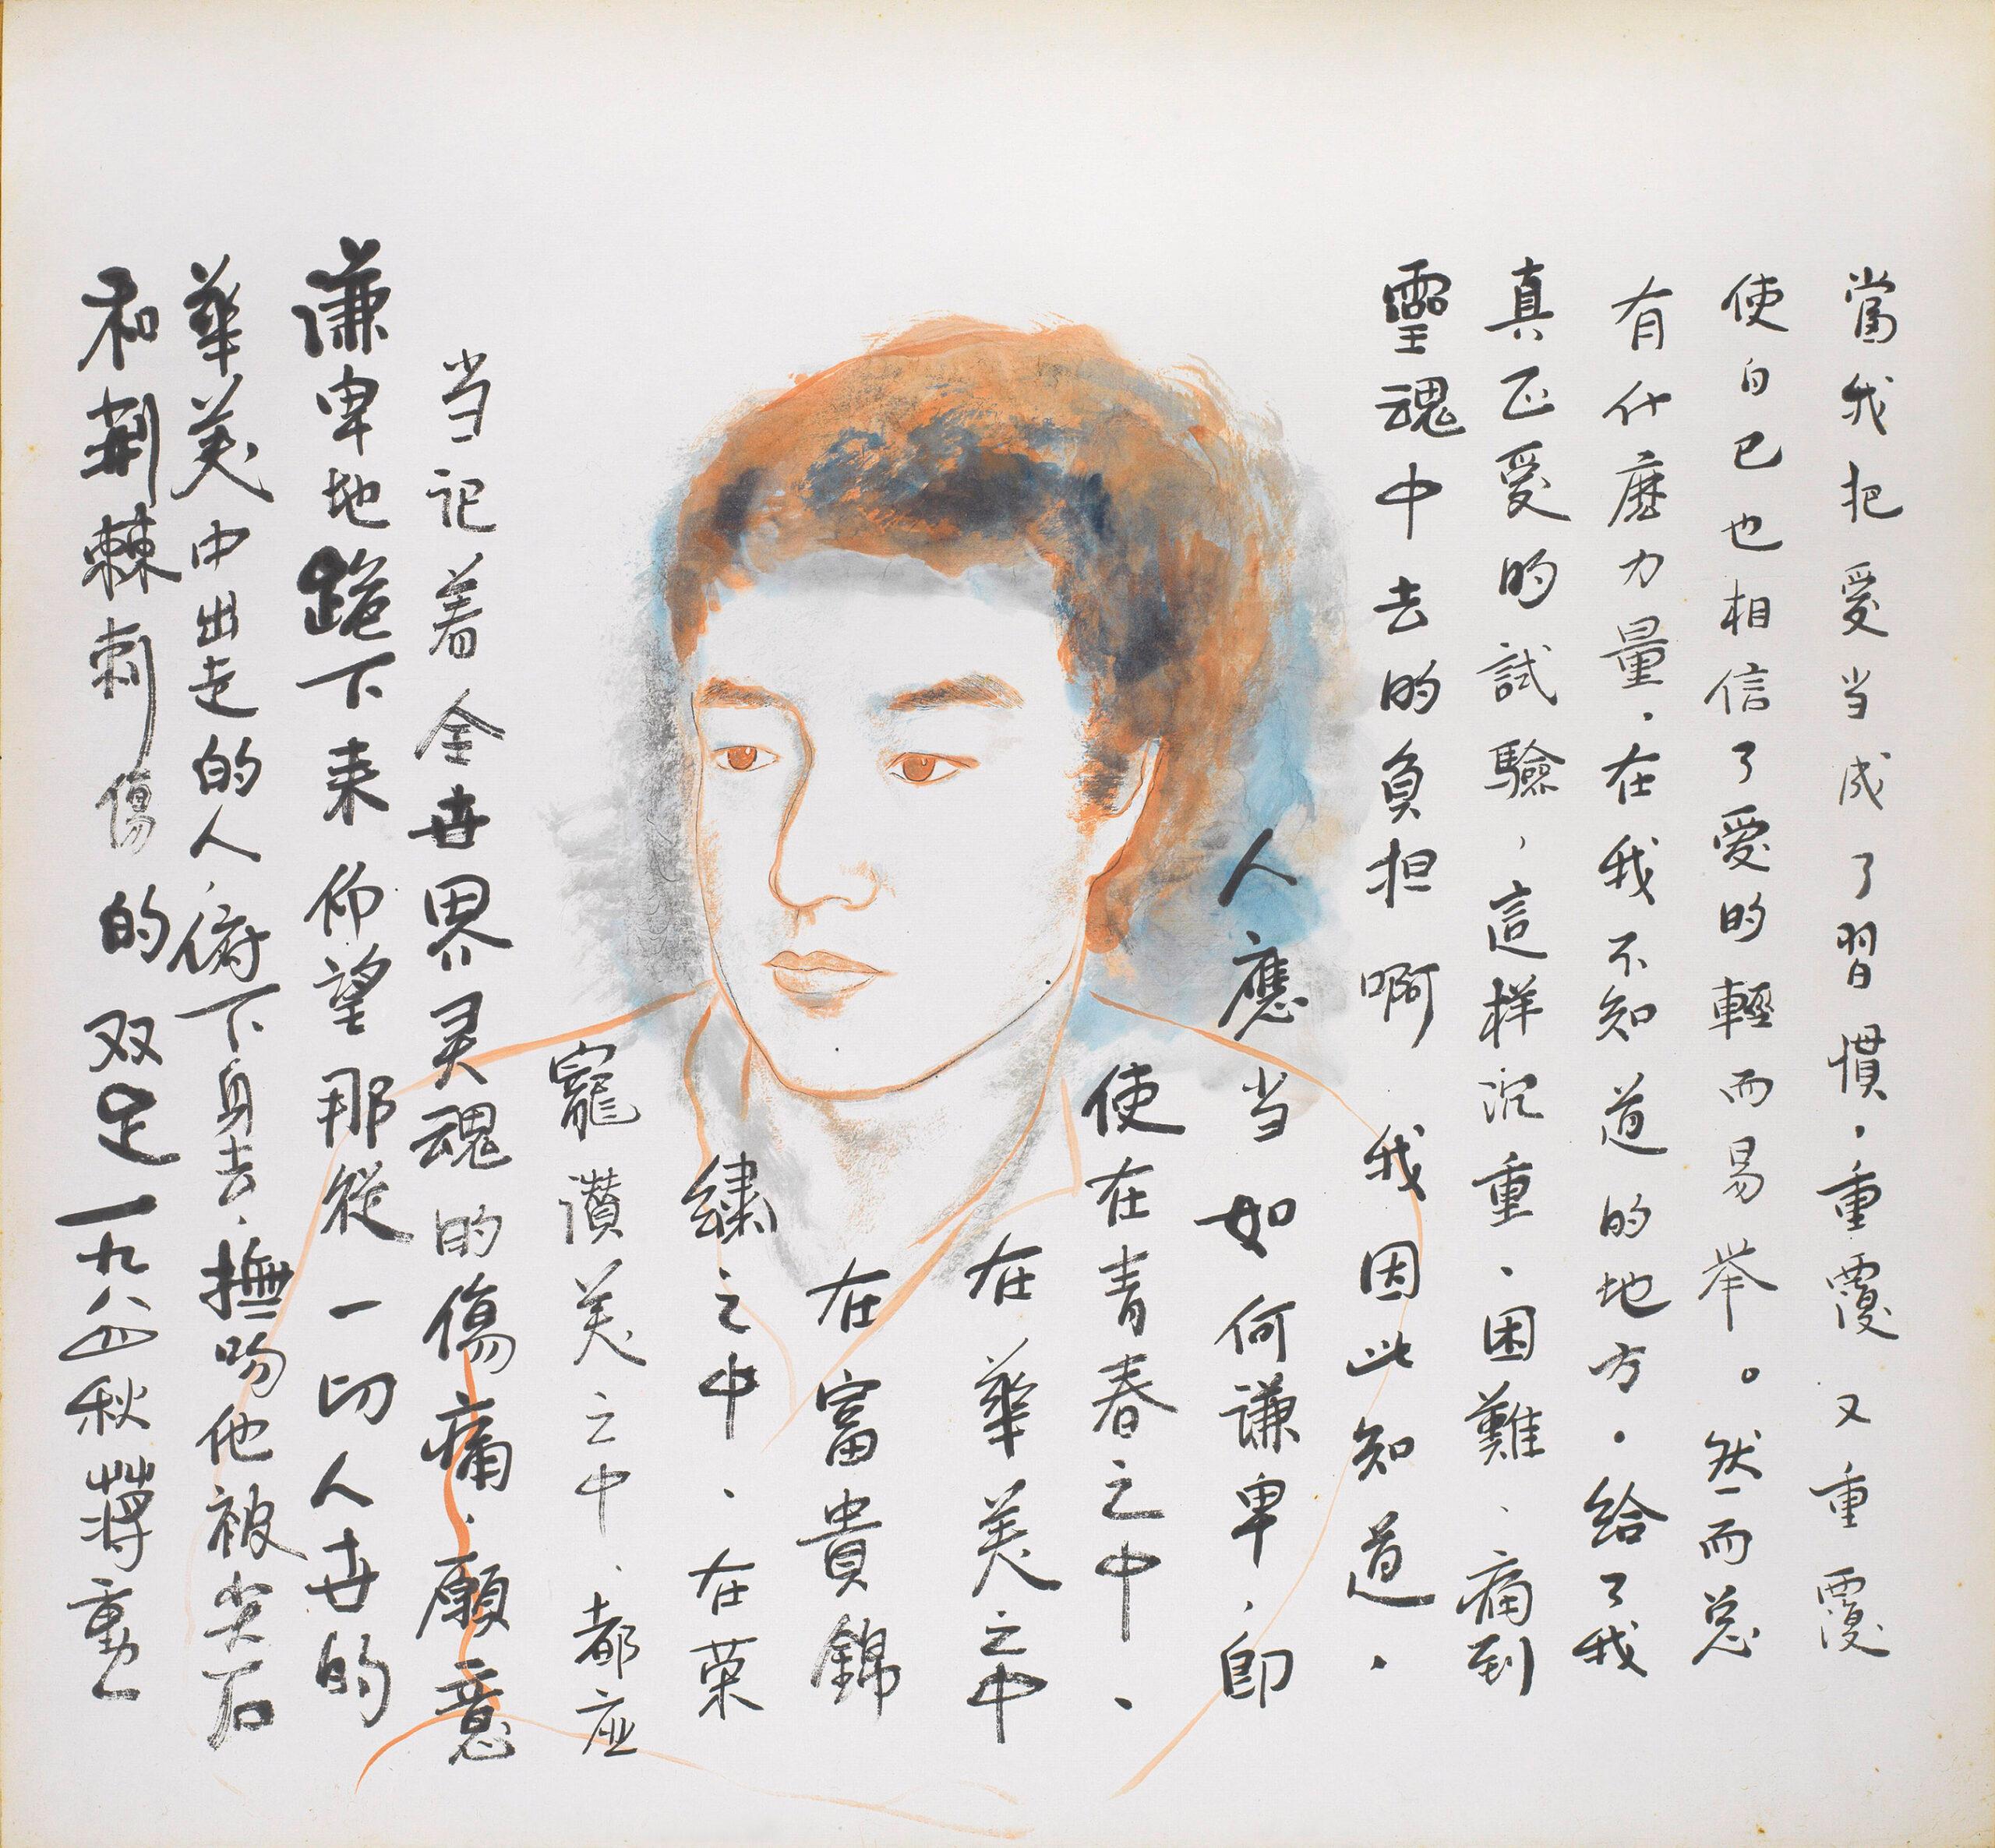 當我把愛当成了習慣，重覆又重覆
使自己也相信了愛的輕而易举。然而总
有什麽力量，在我不知道的地方，給了我
真正愛的試驗，這样沉重、困難、痛到
靈魂中去的負担啊 我因此知道，
人應当如何谦卑，即
使在青春之中、
在華美之中
在富貴錦
繡之中、在荣
寵讚美之中、都应
当记着全世界灵魂的傷痛，願意
谦卑地跪下来仰望那從一切人世的
華美中出走的人，俯下身去，撫吻他被尖石
和荆棘刺傷的双足 一九八四秋 蒋勳